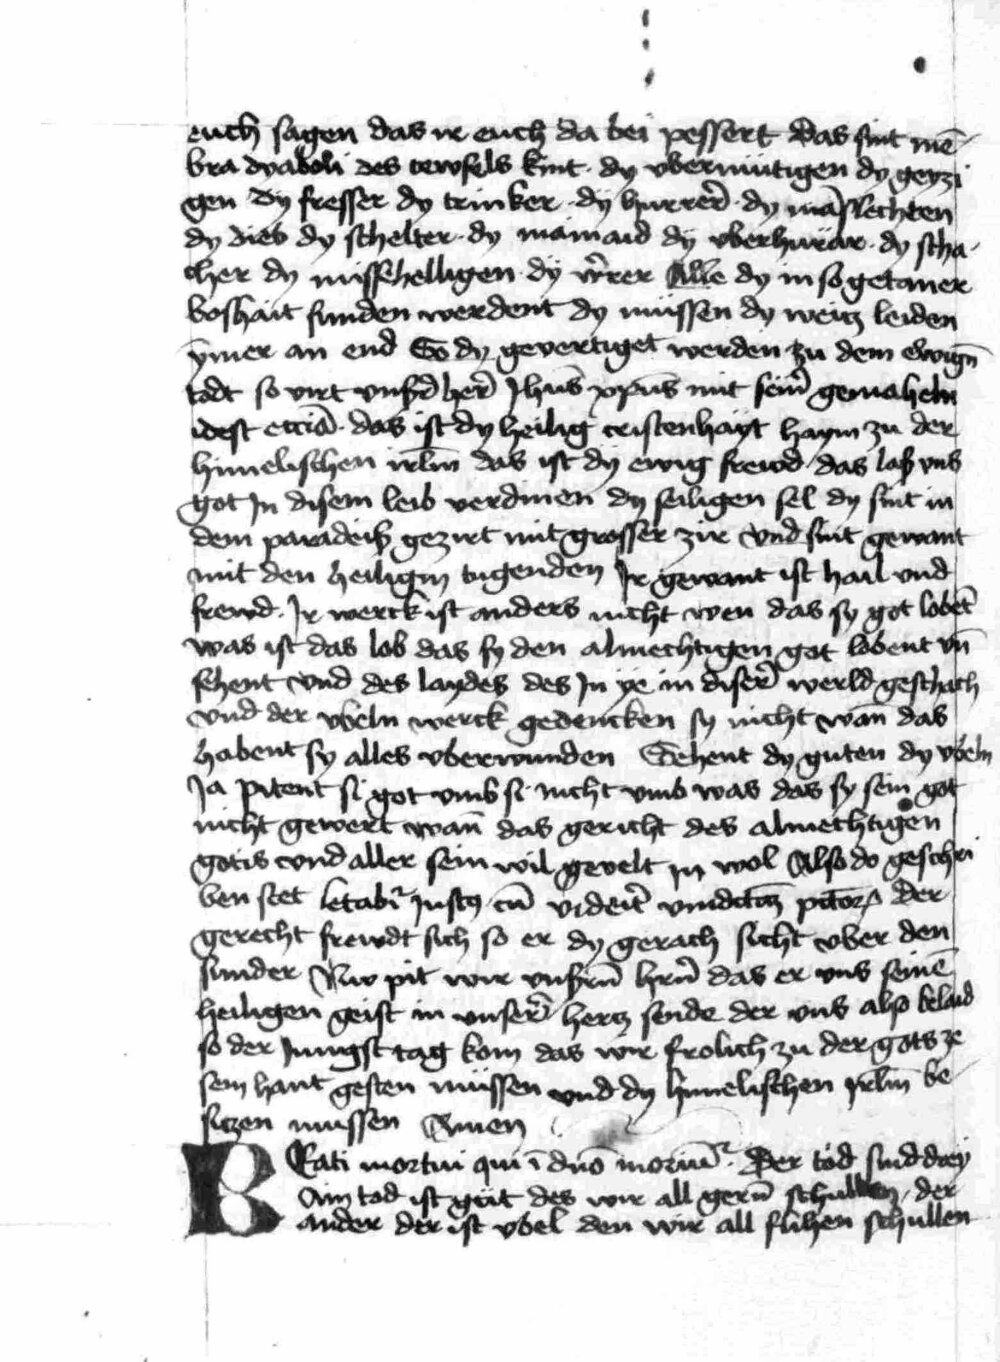 euch sagen das ir euch da bei pessert Das sint mē-
bra dyaboli des tewfels kint · dy vbermütigen dy geyzi
gen Dy fresser dy trinker · dÿ hurrer̄ · dy māslechten
dy dieb dy schelter · dy mainaid dÿ vberhürär · dy scha-
cher dy misshelligen · dÿ Alle dy in so getaner
boshait funden werdent dy müssen dy weitz leiden
ÿmer an end So dy geuertiget werden zu dem ewign̄
todt so virt vnser̄ her̄ Jhūs xp̄us mit seim̄ gemaheln
idest ecciā · das ist dy heilig cristenhäyt haym zu der
himelischen irlm̄ das ist dÿ ewig frewd · das laß vns
got Jn disem leib verdinen dy säligen sel dy sint in
dem paradeiß gezirt mit grosser zir vnd sint gewant
mit den heiligen tugenden Jr gewant ist hail vnd
frewd · Jr werck ist anders nicht wen das sy got lobet̄
was ist das lob das sy den almechtigen got lobent vn̄
sehent vnd des laydes des Jn ÿe in diser̄ werld geschach
vnd der vbeln werck gedencken sy nicht wan̄ das
habent sy alles vberwunden Sehent dy guten dy vbeln
Ja pitent si got vmb si nicht vmb was das sy sein got
nicht gewert wan̄ das gericht des almechtigen
gotis vnd aller sein wil geuelt in wol Also do geschri
ben stet letabr̄ Justꝯ cū videit̄ vindictā pctōꝝ Der
gerecht frewdt sich so er dy gerach sicht vber den
sunder Nw pit wir vnsern̄ hrn̄ das er vns seinē
heiligen geist in vnser̄ hertz sende der vns also belaid
so der Jungst tag kom das wir frolich zu der gots ze
sem hant gesten müssen vnd dy himelischen irlm̄ be-
sitzen mussen Amen
BEati mortui qui ī dnō moriūt̉ · Der tod sind drey
Ain tod ist güt des wir all gern̄ schullen · der
ander der ist vbel den wir all flihen schullen